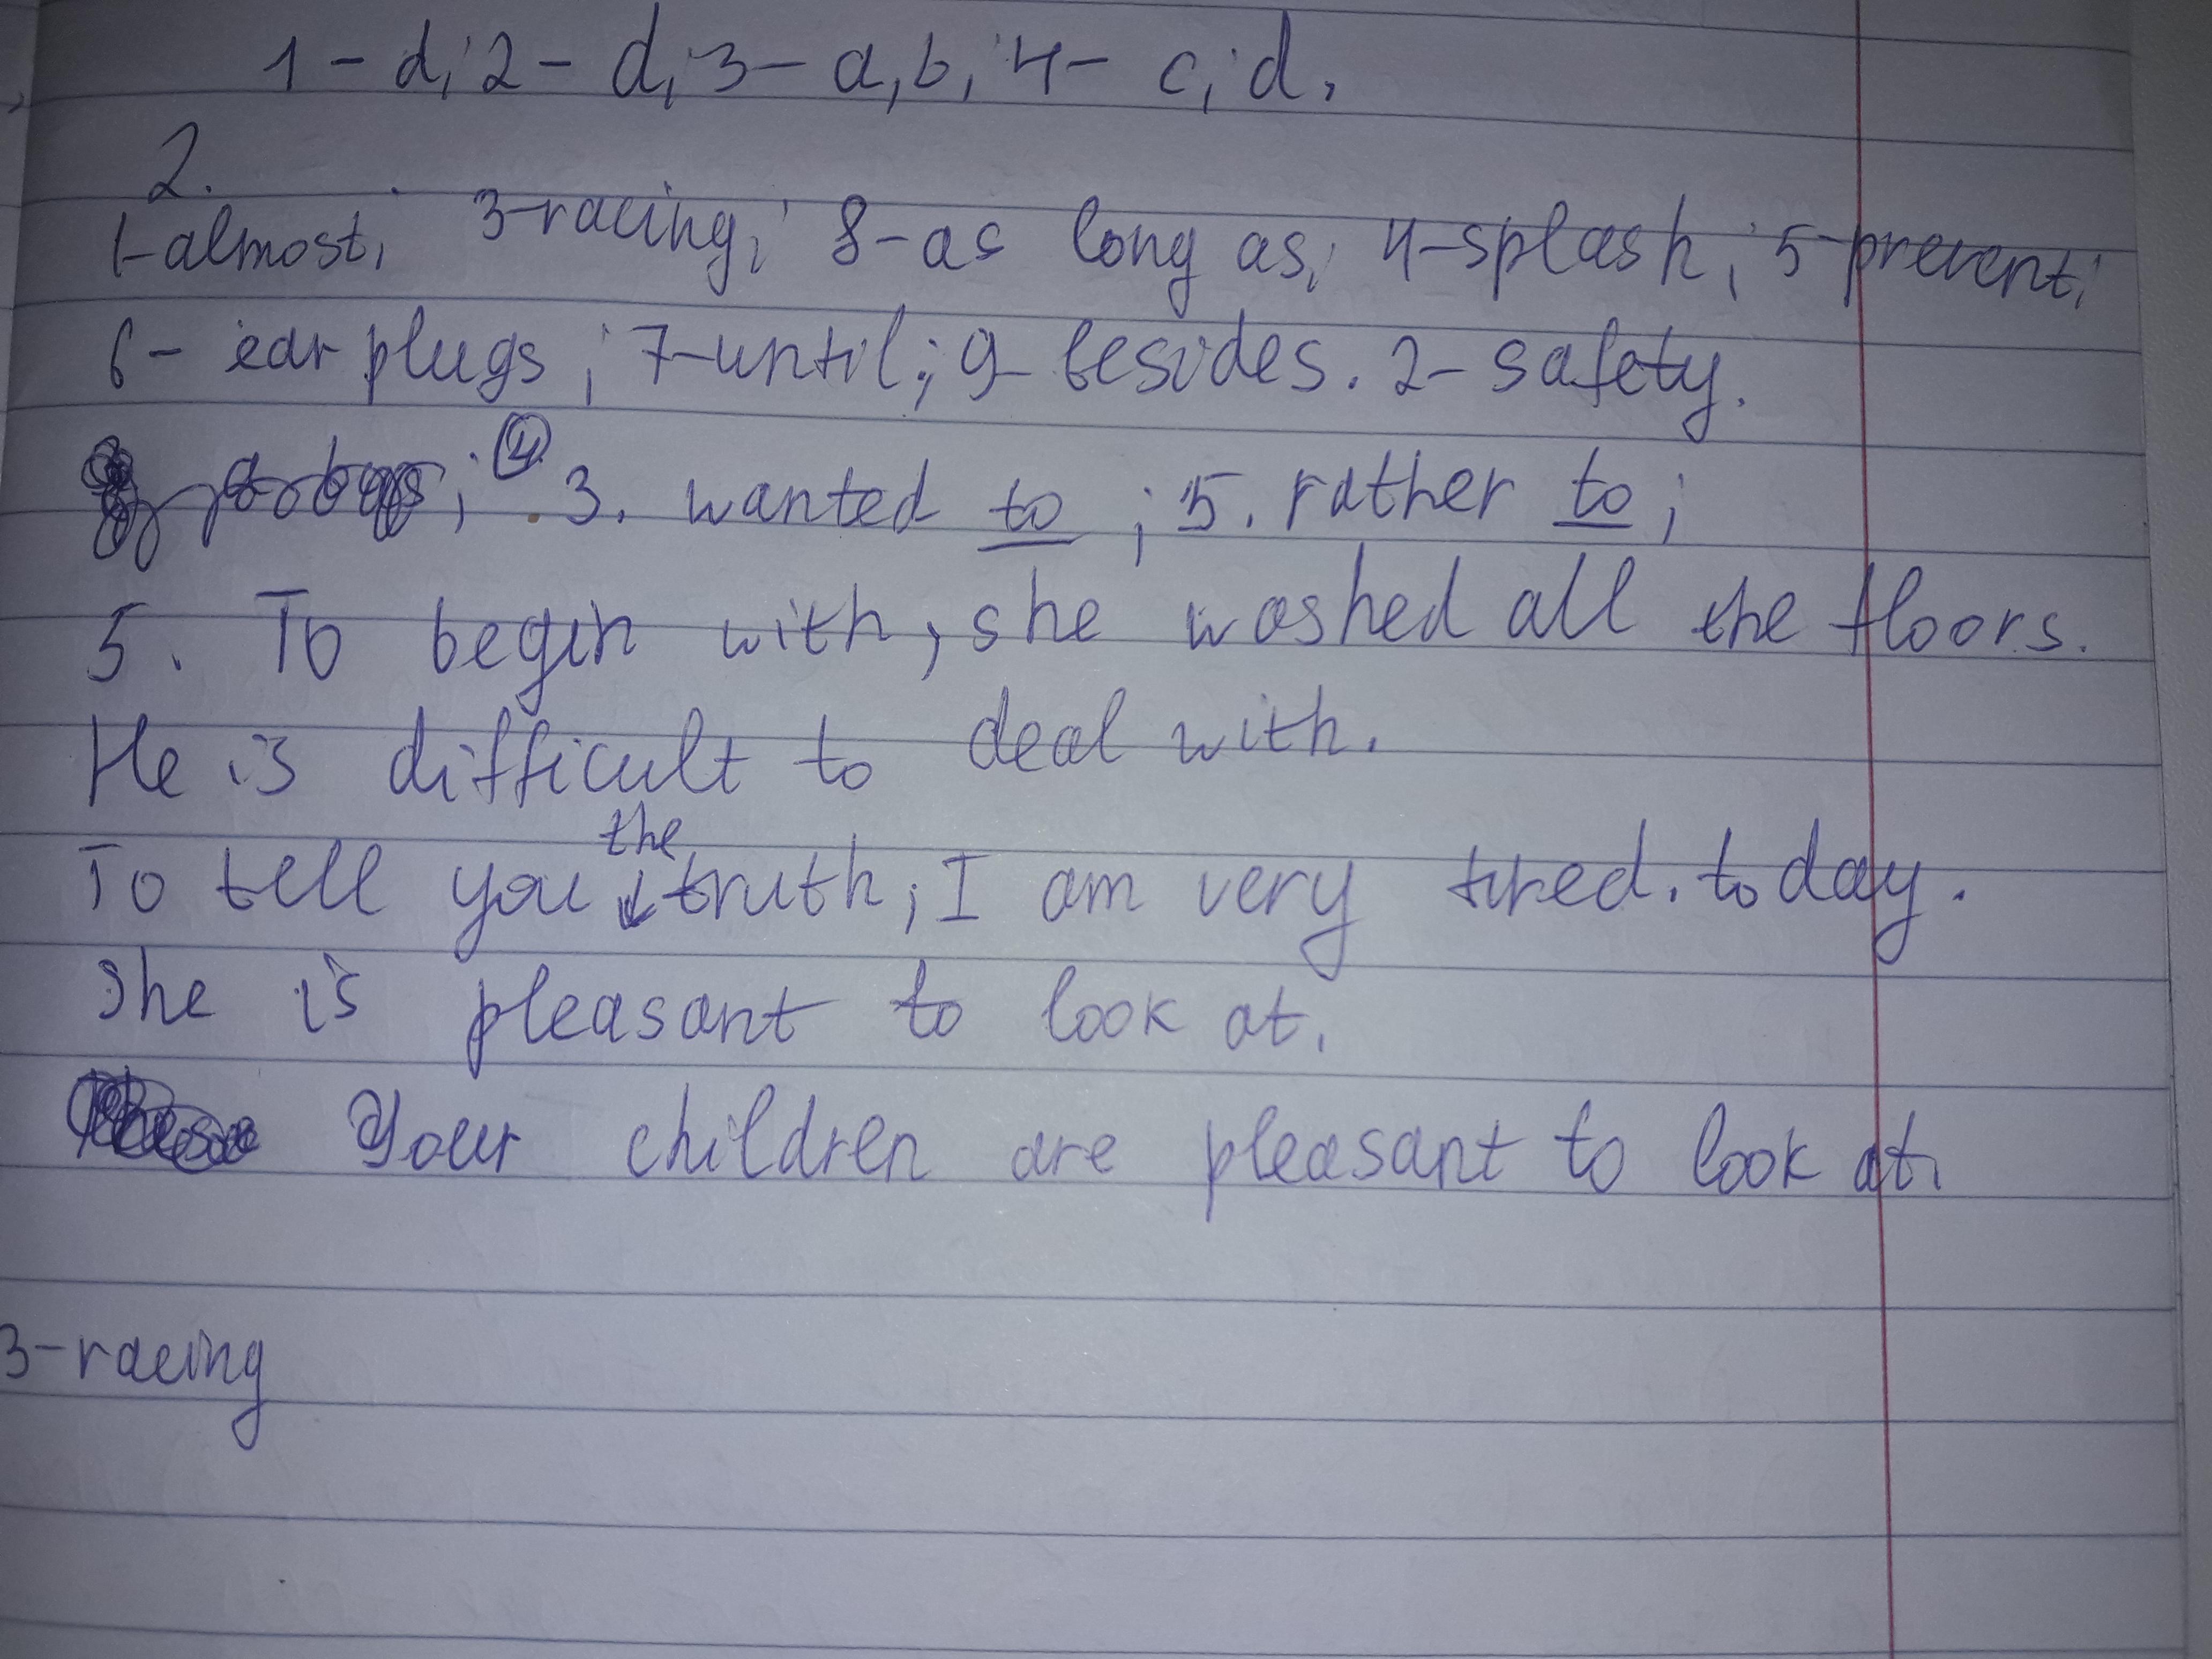 1 - d; 2 - d; 3 - a, b; 4 - c, d.
2.
1-almost; 3-racing; 8-as long as; 4-splash; 5-prevent;
6- ear plugs; 7-until; 9- besides. 2- safety.
; 4 3. wanted to; 5. rather to;
5. To begin with, she washed all the floors.
He is difficult to deal with.
To tell you the truth, I am very tired. today.
She is pleasant to look at.
Your children are pleasant to look at.
3-racing